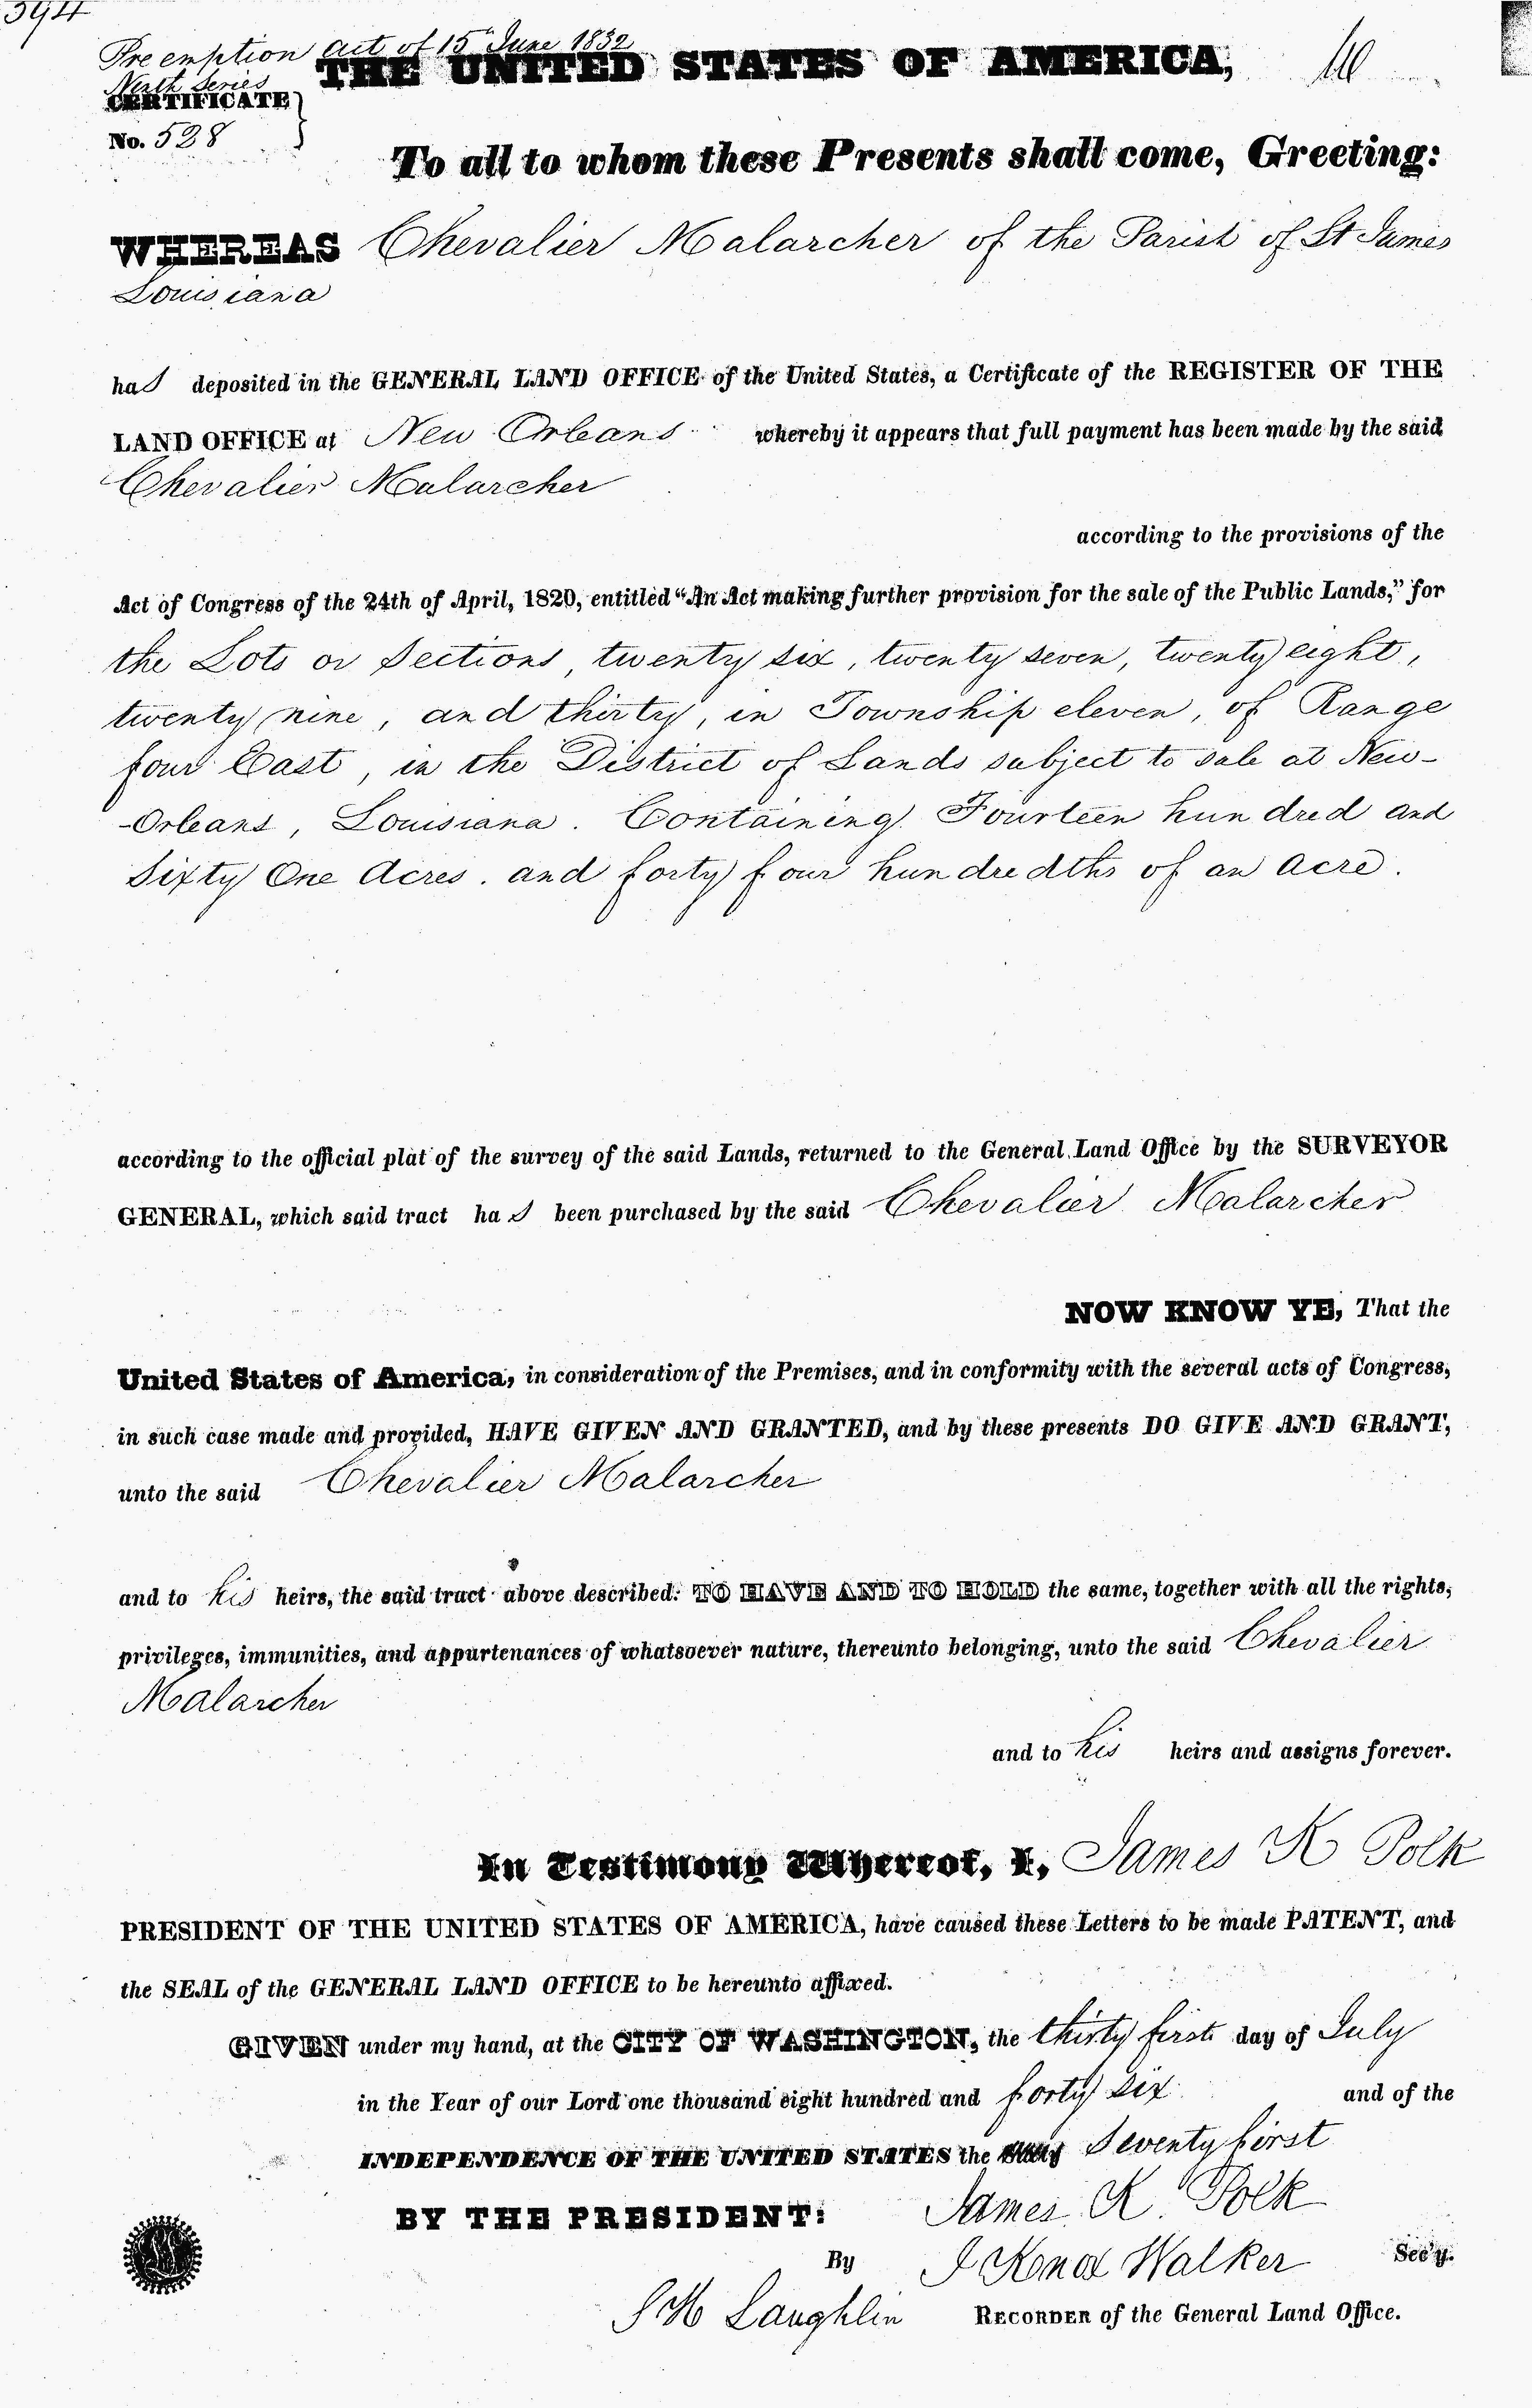 394
Pre emption act of 15th June 1832
THE UNITED STATES OF AMERICA,
North Series
CERTIFICATE
No. 528
To all to whom these Presents shall come, Greeting:
WHEREAS Chevalier Malarcher of the Parish of St James
Louisiana
has deposited in the GENERAL LAND OFFICE of the United States, a Certificate of the REGISTER OF THE
LAND OFFICE at New Orleans whereby it appears that full payment has been made by the said
Chevalier Malarcher
according to the provisions of the
Act of Congress of the 24th of April, 1820, entitled "An Act making further provision for the sale of the Public Lands," for
the Lots or Sections, twenty six, twenty seven, twenty eight,
twenty nine, and thirty, in Township eleven, of Range
four East, in the District of Lands subject to sale at New-
-Orleans, Louisiana. Containing Fourteen hundred and
Sixty One Acres. and forty four hundredths of an acre.
according to the official plat of the survey of the said Lands, returned to the General Land Office by the SURVEYOR
GENERAL, which said tract has been purchased by the said Chevalier Malarcher
NOW KNOW YE, That the
United States of America, in consideration of the Premises, and in conformity with the several acts of Congress,
in such case made and provided, HAVE GIVEN AND GRANTED, and by these presents DO GIVE AND GRANT,
unto the said Chevalier Malarcher
and to his heirs, the said tract above described: TO HAVE AND TO HOLD the same, together with all the rights,
privileges, immunities, and appurtenances of whatsoever nature, thereunto belonging, unto the said Chevalier
Malarcher
and to his heirs and assigns forever.
In Testimony Whereof, I, James K Polk
PRESIDENT OF THE UNITED STATES OF AMERICA, have caused these Letters to be made PATENT, and
the SEAL of the GENERAL LAND OFFICE to be hereunto affixed.
GIVEN under my hand, at the CITY OF WASHINGTON, the thirty first day of July
in the Year of our Lord one thousand eight hundred and forty six and of the
INDEPENDENCE OF THE UNITED STATES the Seventy first
BY THE PRESIDENT: James K. Polk
By J Knox Walker Sec'y.
S H Laughlin RECORDER of the General Land Office.